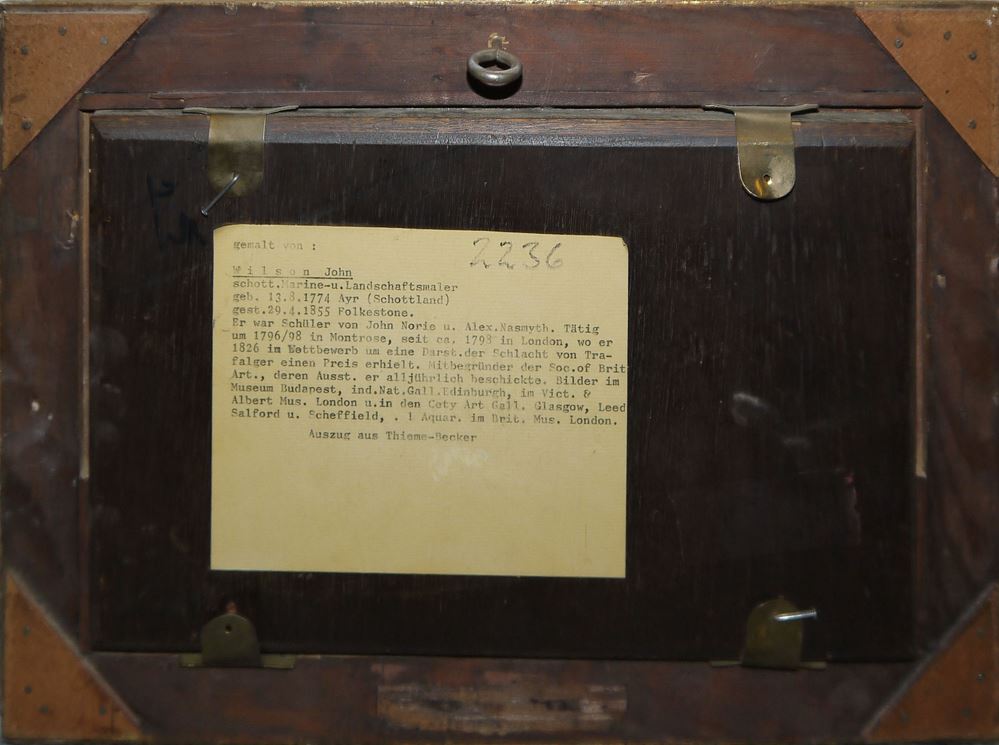 gemalt von :
2236
Wilson John
schott.Marine-u.Landschaftsmaler
geb. 13.8.1774 Ayr (Schottland)
gest.29.4.1855 Folkestone.
Er war Schüler von John Norie u. Alex.Nasmyth. Tätig
um 1796/98 in Montrose, seit ca. 1798 in London, wo er
1826 im Wettbewerb um eine Darst.der Schlacht von Tra-
falger einen Preis erhielt. Mitbegründer der Soc.of Brit
Art., deren Ausst. er alljührlich beschickte. Bilder im
Museum Budapest, ind.Nat.Gall.Edinburgh, im Vict. &
Albert Mus. London u.in den Cety Art Gall. Glasgow, Leed
Salford u. Scheffield, . 1 Aquar. im Brit. Mus. London.
Auszug aus Thieme-Becker